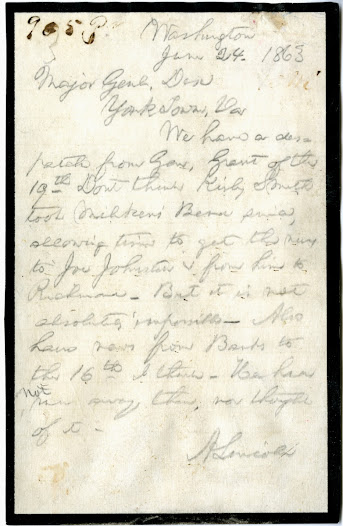 905 P.
Washington
June 24. 1863
Major Genl. Dix
York Town, Va
We have a des-
patch from Gen. Grant of the
19th Dont think Kirby Smith
took Millikens Bend since,
allowing time to get the news
to Joe Johnston & from him to
Richmond - But it is not
absolutely impossible - Also
have news from Banks to
the 16th I think - He had
not run away then, nor thought
of it -
A Lincoln